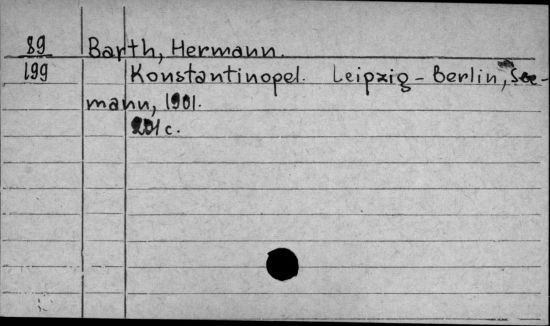 89 Barth, Hermann.
199 Konstantinopel. Leipzig - Berlin, See-
mann, 1901.
201 c.